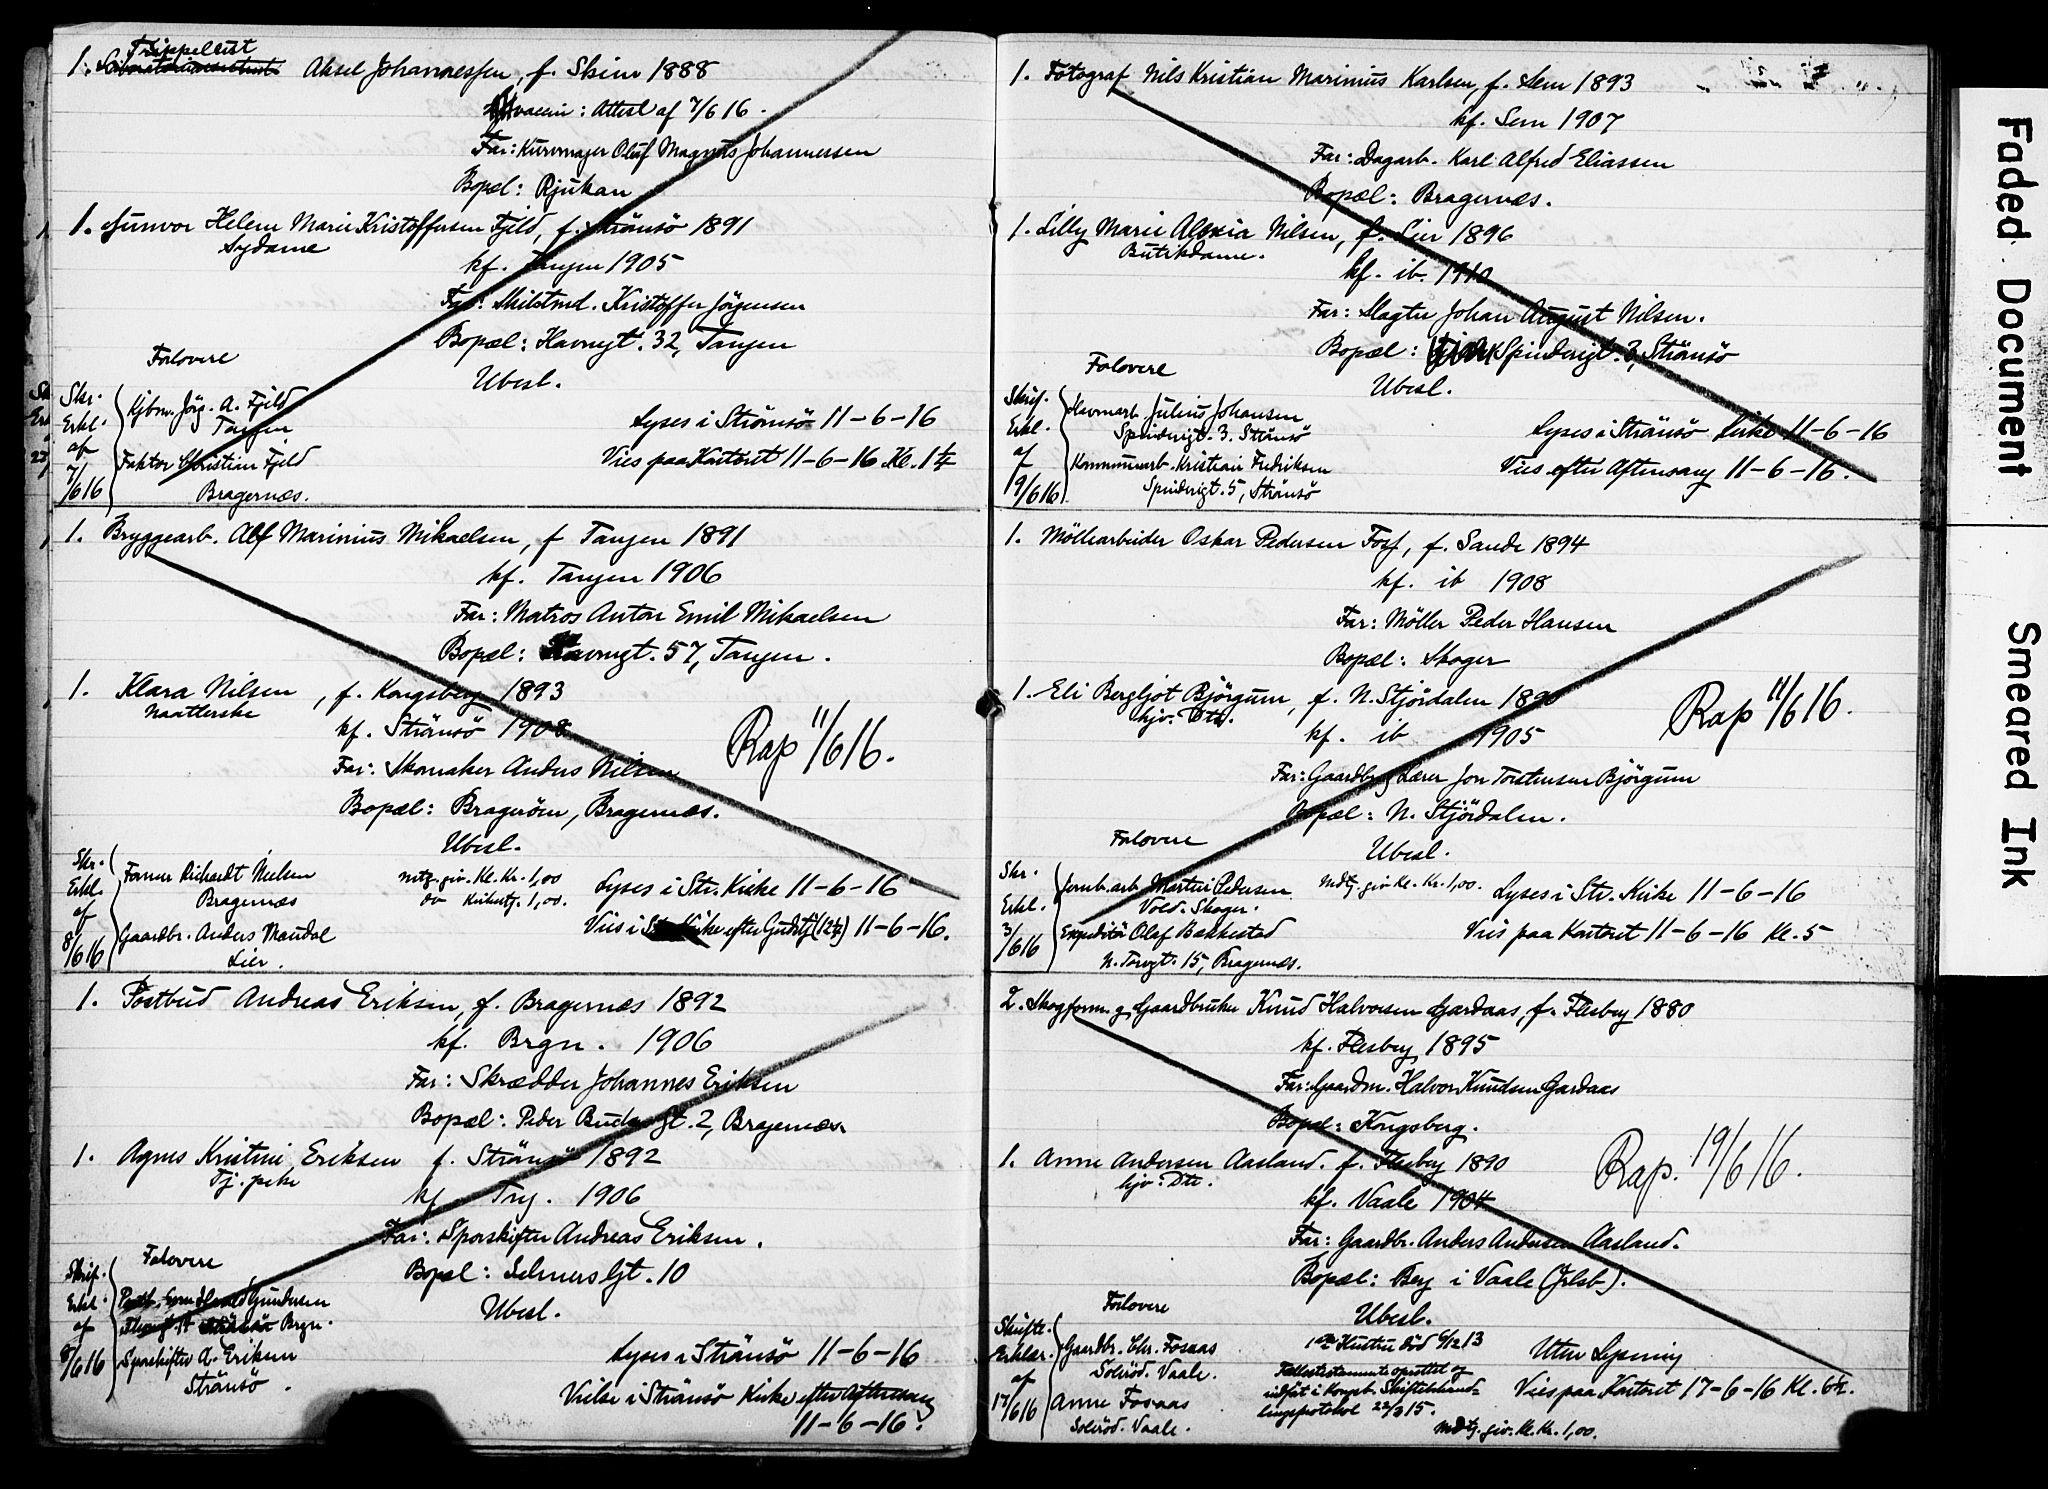 Trippelist
1. Aksel Johannessen, f. Skien 1888
vaccin: Attest af 7/6 16.
Far: Kurvmager Oluf Magnus Johannessen
Bopæl: Rjukan
1. Gunvor Helene Marie Kristoffersen Fjeld, f. Strømsö 1891
Sydame
kf. Tangen 1905
Far: Skibstmd. Kristoffer Jörgensen
Bopæl: Havnegt. 32, Tangen
Forlovere
Ubesl.
Skr. Erkl. af 7/6 16
Kjbm. Jörg. A. Fjeld
Tangen
Faktor Christian Fjeld
Bragernæs.
Lyses i Strömsö 11-6-16
Vies paa Kontoret 11-6-16 Kl. 1 1/4
1. Bryggearb. Alf Marinius Mikaelsen, f Tangen 1891
kf. Tangen 1906
Far: Matros Anton Emil Mikaelsen
Bopæl: Havnegt. 57, Tangen.
1. Klara Nilsen, f. Kongsberg 1893
Naatlerske
kf. Strömsö 1908
Far: Skomaker Anders Nilsen
Rap 11/6 16.
Bopæl: Bragerøen, Bragernæs.
Ubesl.
Skr. Erkl. af 8/6 16
Former Richardt Nielsen
Bragernæs
Gaardbr. Anders Maudal
Lier.
mdtg. giv. Kl. Kr. 1,00
do Kirketj. 1,00.
Lyses i Str. Kirke 11-6-16
Vies i Kirke efter Gudstj (12 1/2) 11-6-16.
1. Postbud Andreas Eriksen, f. Bragernæs 1892
kf. Brgn. 1906
Far: Skrædder Johannes Eriksen
Bopæl: Peder Buds Gt. 2, Bragernæs
1. Agnes Kristine Eriksen f. Strömsö 1892
Tj. pike
kf Trg. 1906
Far: Sporskifter Andreas Eriksen.
Forlovere
Bopæl: Selmers Gt. 10
Ubesl.
Skrif. Erkl. af 9/6 16
Postb. Harald Gundersen
Brgn.
Sporskifter A. Eriksen
Strömsö.
Lyses i Strömsö 11-6-16
Vielse i Strömsö Kirke efter Aftensang
11-6-16.
1. Fotograf Nils Kristian Marinius Karlsen, f. Sem 1893
kf. Sem 1907
Far: Dagarb. Karl Alfred Eliassen
Bopæl: Bragernæs.
1. Lilly Marie Alexia Nilsen, f. Lier 1896
Butikdame.
kf. ib. 1910
Far: Slagter Johan August Nilsen.
Bopæl: Spinderigt. 3, Strömsö
Forlovere
Ubesl.
Skrif. Erkl. af 9/6 16
Havnarb. Julius Johansen
Spinderigt. 3. Strömsö
Kommunearb. Kristian Fredriksen
Spinderigt. 5, Strömsö
Lyses i Strömsö Kirke 11-6-16
Vies efter Aftensang 11-6-16.
1. Möllearbeider Oskar Pedersen Foss, f. Sande 1894
kf. ib 1908
Far: Möller Peder Hansen
Bopæl: Skoger
1. Eli Bergljot Björgum, f. N. Stjördalen 1890
hjv. Dtr.
kf. ib 1905
Rap 11/6 16.
Far: Gaardbr. og Lærer Jon Torstensen Björgum
Bopæl: N. Stjördalen.
Forlovere
Ubesl.
Skr. Erkl. 3/6 16
Jernb. arb Martin Pedersen
Vold. Skoger.
Expeditör Olaf Bakkestad
N. Torvgt. 15, Bragernæs.
Mdtj. giv Kl. Kr. 1,00.
Lyses i Str. Kirke 11-6-16
Vies paa Kontoret 11-6-16 Kl. 5
2. Skogform. og Gaardbruker Knud Halvorsen Gardaas, f. Flesberg 1880
kf. Flesberg 1895
Far: Gaardm. Halvor Knudsen Gardaas
Bopæl: Kongsberg.
1. Anne Andersen Aasland. f. Flesberg 1890
hjv. Dtr.
kf. Vaale 1904
Rap. 19/6 16.
Far: Gaardbr. Anders Andersen Aasland.
Bopæl: Berg i Vaale (Jrlsb).
Forlovere
Ubesl.
Skriftr. Erklær. af 17/6 16
Gaardbr. Chr. Fosaas
Solerød. Vaale.
Anne Fosaas
Solerød. Vaale.
1ste Hustru död 9/12 13
Fællestestamente oprettet og
indført i Kongsb. Skiftebehand-
lingsprotokol 22/3 15.
Uten Lysning
Vies paa Kontoret 17-6-16 Kl. 6 1/2.
Mdtj. giv. Kl. Kr. 1,00.
Faded Document
Smeared Ink